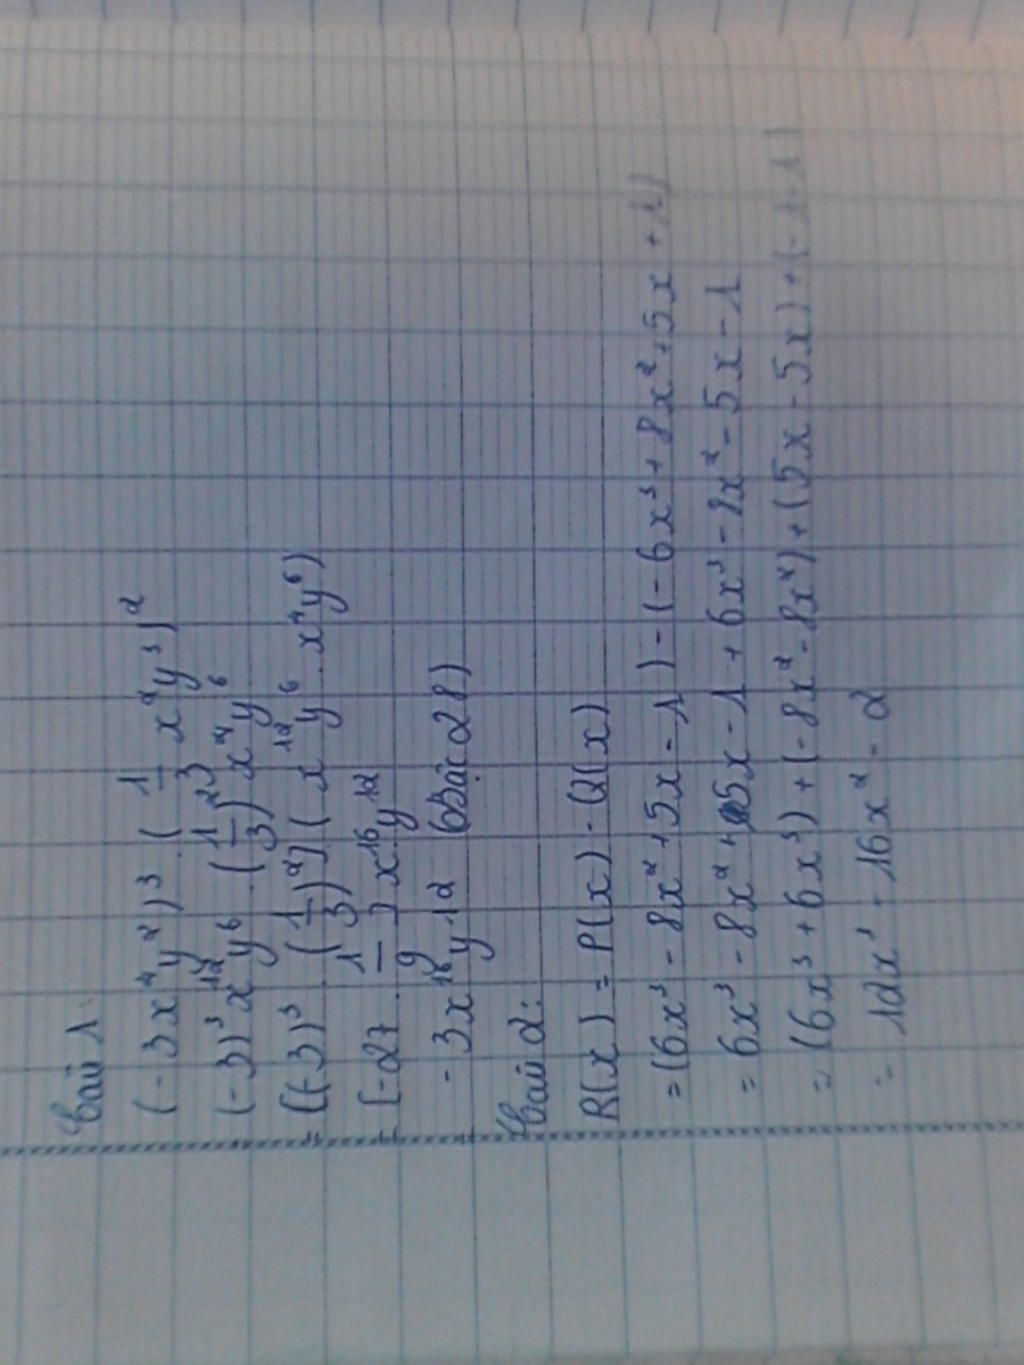 Bài 1:
(-3x⁴y²)³ . (1/3 x²y³)²
(-3)³ x¹²y⁶ . (1/3)² x⁴y⁶
= [(-3)³ . (1/3)²] (x¹²y⁶ . x⁴y⁶)
= [-27 . 1/9] x¹⁶y¹²
- 3x¹⁶y¹² (Bậc 28)
Bài 2:
R(x) = P(x) - Q(x)
= (6x³ - 8x² + 5x - 1) - (-6x³ + 8x² + 5x + 1)
= 6x³ - 8x² + 5x - 1 + 6x³ - 8x² - 5x - 1
= (6x³ + 6x³) + (-8x² - 8x²) + (5x - 5x) + (-1-1)
= 12x³ - 16x² - 2